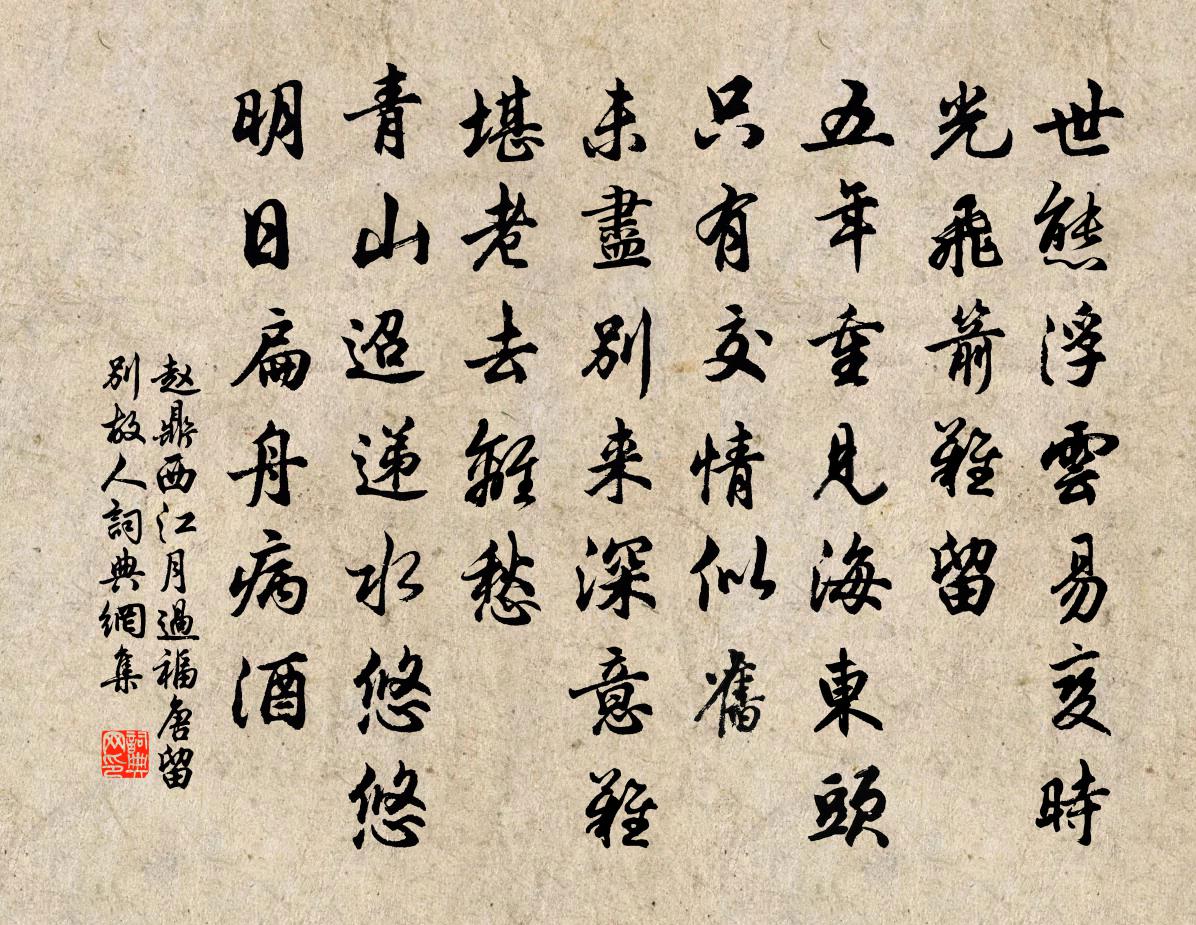 世態浮雲易变時
光飛箭難留
五年重見海東頭
只有交情似舊
未盡別来深意難
堪老去離愁
青山迢递水悠悠
明日扁舟病酒
赵鼎西江月過福唐留
別故人詞典網集
詞典
网印